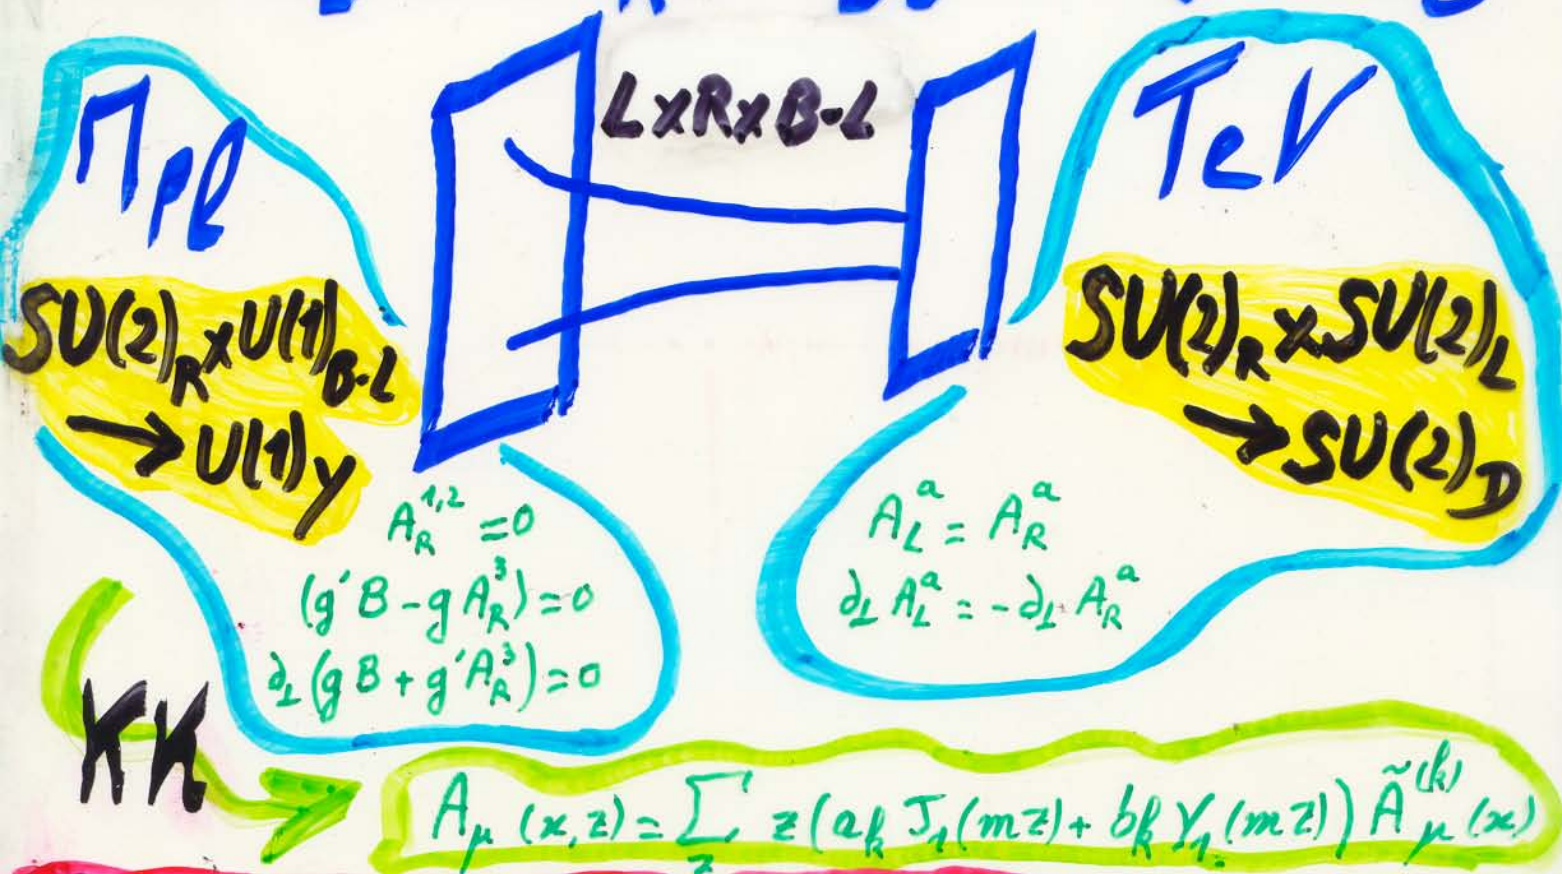 LxRxB-L
MPl
TeV
SU(2)R x U(1)B-L
→ U(1)Y
SU(2)R x SU(2)L
→ SU(2)D
A_R^{1,2} = 0
(g'B - gA_R^3) = 0
∂⊥(gB + g'A_R^3) = 0
A_L^a = A_R^a
∂⊥ A_L^a = -∂⊥ A_R^a
KK
A_μ(x,z) = Σ_z z(a_k J_1(mz) + b_k Y_1(mz)) Ã_μ^{(k)}(x)